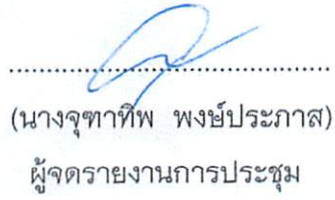 (นางจุฑาทิพ พงษ์ประภาส)
ผู้จดรายงานการประชุม